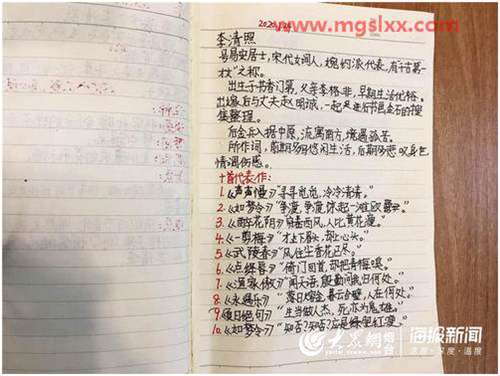 www.mgslxx.com
李清照
易易安居士，宋代女词人，婉约派代表，有"千古第一
才女"之称。
出生于书香门第，父亲李格非，早期生活优裕。
出嫁后与丈夫赵明诚，一起
集整理。
后金兵入据中原，流寓南方，境遇孤苦。
所作词，前期多写悠闲生活，后期多悲叹身世
情调伤感。
十首代表作：
1.《声声慢》"寻寻觅觅，冷冷清清。"
2.《如梦令》"争渡，争渡，惊起一滩鸥鹭。"
3.《醉花阴》帘卷西风，人比黄花瘦。"
4.《一剪梅》"才下眉头，却上心头。"
5.《武陵春》"风住尘香花已尽。"
6.《点绛唇》"倚门回首，却把青梅嗅。"
7.《渔家傲》"闻天语，殷勤问我归何处。"
8.《永遇乐》"落日熔金，暮云合璧，人在何处。"
9.《夏日绝句》"生当做人杰，死亦为鬼雄。"
10.《如梦令》"知否?知否?应是绿肥红瘦。"
大众网 海报新闻